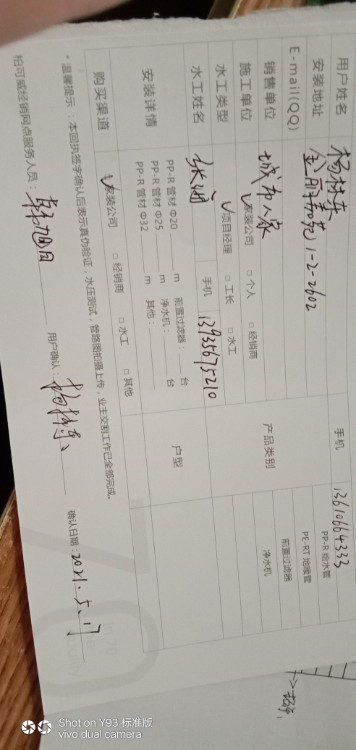 用户姓名 杨林东 手机 13610664333
安装地址 1-2-2602
E-mail(QQ)
销售单位 城市人家 产品类别 PP-R 给水管
施工单位 ☑家装公司 □个人 □经销商 PE-RT 地暖管
水工类型 ☑项目经理 □工长 □水工 前置过滤器
净水机
水工姓名 手机 13935675210 户型
安装详情 PP-R 管材 Φ20 m 前置过滤器: 台
PP-R 管材 Φ25 m 净水机: 台
PP-R 管材 Φ32 m 其他:
购买渠道 ☑家装公司 □经销商 □水工 □其他
*温馨提示:本回执签字确认后表示真伪验证,水压测试,管路图拍摄上传,业主交割工作已全部完成。
柏可威经销网点服务人员: 用户确认: 确认日期: 2021.5.17
Shot on Y93 标准版
vivo dual camera